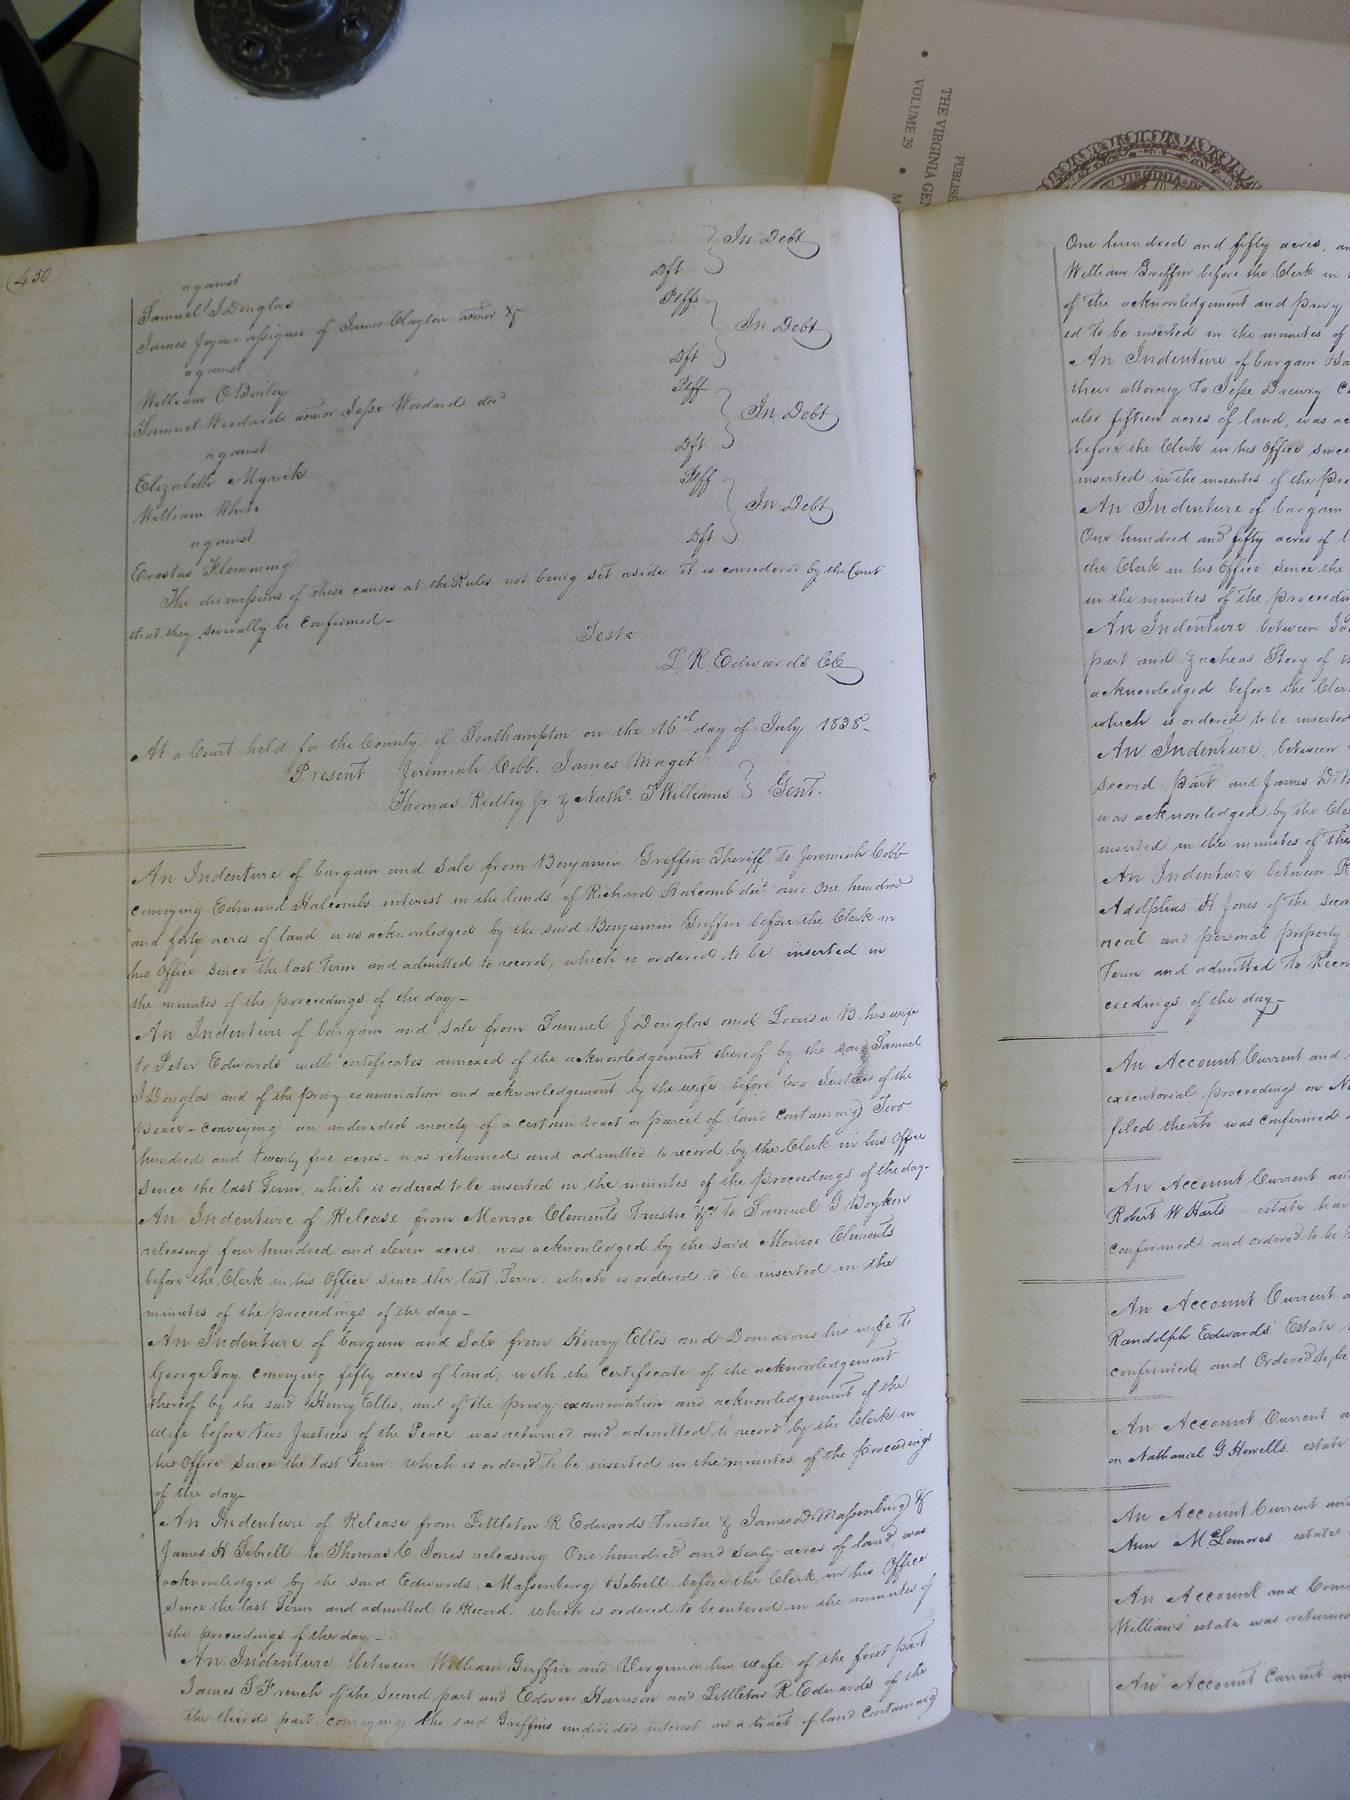 THE VIRGINIA GEN
VOLUME 29
PUBLIS
VIRGINIA
450
In Debt
against
Dft
Samuel J Douglas
Plff
James Joyner assignee of James Clayton &
In Debt
against
Dft
William O Bailey
Plff
Samuel Woodards Jesse Woodard decd
In Debt
against
Dft
Elizabeth Myrick
Plff
William White
In Debt
against
Dft
Erastus Flemming
The dismissions of these causes at the Rules not being set aside it is considered by the Court
that they severally be confirmed-
Teste
L. R. Edwards CC
At a Court held for the County of Southampton on the 16th day of July 1838-
Present Jeremiah Cobb. James Maget
Thomas Ridley Jr & Nathl T Williams } Gent.
An Indenture of bargain and Sale from Benjamin Griffin Sheriff to Jeremiah Cobb
conveying Edmund Halcombs interest in the lands of Richard Halcomb decd and One hundred
and forty acres of land was acknowledged by the said Benjamin Griffin before the Clerk in
his Office since the last Term and admitted to record, which is ordered to be inserted in
the minutes of the proceedings of the day-
An Indenture of bargain and Sale from Samuel J Douglas and Louisa B his wife
to Peter Edwards with certificates annexed of the acknowledgement thereof by the said Samuel
J Douglas and of the privy examination and acknowledgement by the wife before two Justices of the
Peace- conveying an undivided moiety of a certain tract or parcel of land containing Two
hundred and twenty five acres- was returned and admitted to record by the Clerk in his Office
since the last Term, which is ordered to be inserted in the minutes of the proceedings of the day-
An Indenture of Release from Monroe Clements Trustee &c to Samuel G Boykin
releasing four hundred and eleven acres. was acknowledged by the said Monroe Clements
before the Clerk in his Office since the last Term. which is ordered to be inserted in the
minutes of the proceedings of the day-
An Indenture of bargain and Sale from Henry Ellis and Damarous his wife to
George Gay conveying fifty acres of land, with the certificate of the acknowledgement
thereof by the said Henry Ellis, and of the privy examination and acknowledgement of the
wife before two Justices of the Peace was returned and admitted to record by the Clerk in
his Office since the last Term. which is ordered to be inserted in the minutes of the proceedings
of the day-
An Indenture of Release from Littleton R Edwards Trustee & James D Massenburg &
James H Sebrell to Thomas C Jones releasing One hundred and sixty acres of land, was
acknowledged by the said Edwards, Massenburg & Sebrell before the Clerk in his Office
since the last Term and admitted to Record. which is ordered to be entered in the minutes of
the proceedings of the day-
An Indenture between William Griffin and Virginia his wife of the first part
James T French of the second part and Edwin Harrison and Littleton R Edwards of the
the third part conveying the said Griffins undivided interest in a tract of land containing
One hundred and fifty acres,
William Griffin before the Clerk in
of the acknowledgement and privy
ed to be inserted in the minutes of
An Indenture of bargain
their attorney To Jesse Drewry
also fifteen acres of land, was
before the Clerk in his Office since
inserted in the minutes of the
An Indenture of bargain
One hundred and fifty acres of
the Clerk in his Office since the
in the minutes of the
An Indenture between
part and Zacheas Story of
acknowledged before the
which is ordered to be inserted
An Indenture, between
second part and James D
was acknowledged by the
inserted in the minutes of the
An Indenture between
Adolphus H Jones of the
real and personal property
Term and admitted to
ceedings of the day-
An Account Current and
executorial proceedings on
filed thereto was confirmed
An Account Current
Robert W Harts estate
confirmed and ordered to be
An Account Current
Randolph Edwards' Estate
confirmed and Ordered to be
An Account Current
on Nathaniel G Howells estate
An Account Current
Ann McLemores estate
An Account and
Williams' estate was returned
An Account Current